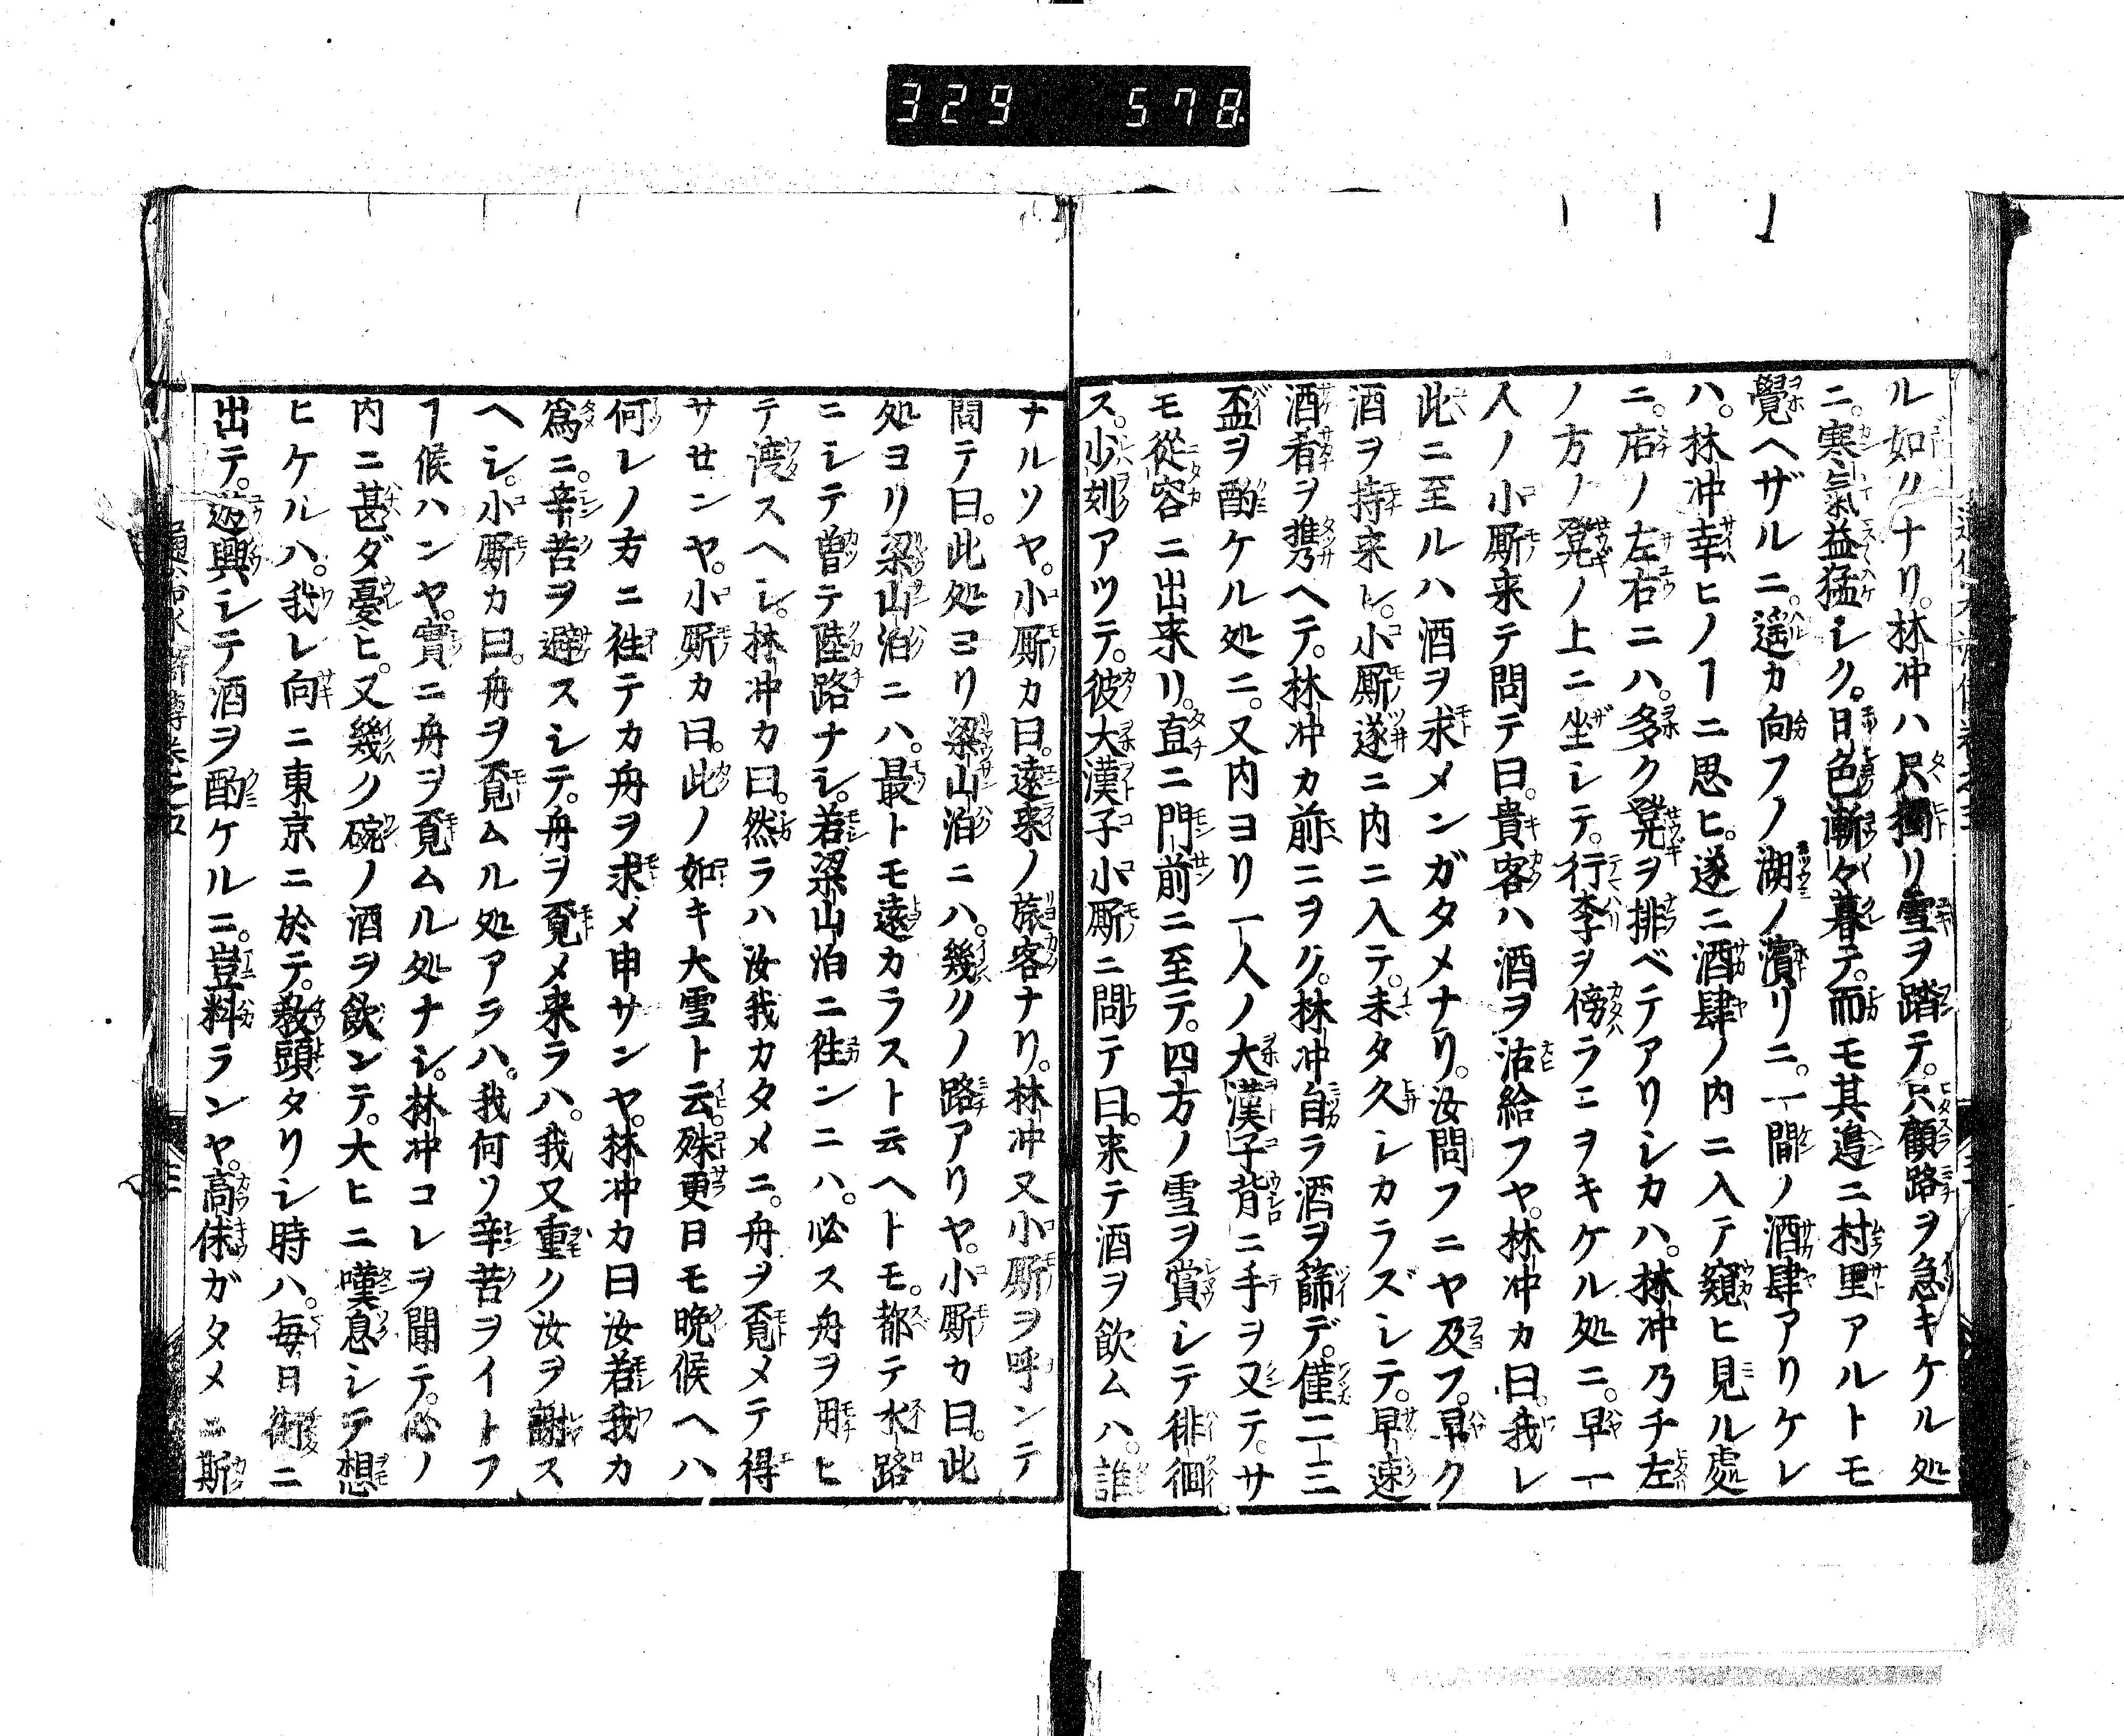 329 578
ル如リナリ。林冲ハ只獨リ雪ヲ踏テ。只顧路ヲ急キケル処
ニ。寒氣益猛シク。日色漸々暮テ。而モ其邉ニ村里アルトモ
覺ヘザルニ。遥カ向フノ湖ノ濱リニ。一間ノ酒肆アリケレ
ハ。林冲幸ヒノヿニ思ヒ。遂ニ酒肆ノ内ニ入テ窺ヒ見ル處
ニ。店ノ左右ニハ。多ク凳ヲ排ベテアリシカハ。林冲乃チ左
ノ方ノ凳ノ上ニ坐シテ。行李ヲ傍ラニヲキケル処ニ。早一
人ノ小厮来テ問テ曰。貴客ハ酒ヲ沽給フヤ。林冲カ曰。我レ
此ニ至ルハ酒ヲ求メンガタメナリ。汝問フニヤ及フ。早ク
酒ヲ持来レ。小厮遂ニ内ニ入テ。未タ久シカラズシテ。早速
酒肴ヲ携ヘテ。林冲カ前ニヲク。林冲自ラ酒ヲ篩デ。僅二三
盃ヲ酌ケル処ニ。又内ヨリ一人ノ大漢子背ニ手ヲ叉テ。サ
モ從容ニ出来リ。直ニ門前ニ至テ。四方ノ雪ヲ賞シテ徘徊
ス。少刻アツテ。彼大漢子小厮ニ問テ曰。来テ酒ヲ飲ムハ。誰
ナルソヤ。小厮カ曰。遠来ノ旅客ナリ。林冲又小厮ヲ呼ンテ
問テ曰。此処ヨリ梁山泊ニハ。幾クノ路アリヤ。小厮カ曰。此
処ヨリ梁山泊ニハ。最トモ遠カラスト云ヘトモ。都テ水路
ニシテ曽テ陸路ナシ。若梁山泊ニ徃ンニハ。必ス舟ヲ用ヒ
テ渡スヘシ。林冲カ曰。然ラハ汝我カタメニ。舟ヲ覓メテ得
サセンヤ。小厮カ曰。此ノ如キ大雪ト云。殊更日モ晩候ヘハ
何レノ方ニ徃テカ舟ヲ求メ申サンヤ。林冲カ曰汝若我カ
爲ニ。辛苦ヲ避スシテ。舟ヲ覓メ来ラハ。我又重ク汝ヲ謝ス
ヘシ。小厮カ曰。舟ヲ覓ムル処アラハ。我何ソ辛苦ヲイトフ
ヿ候ハンヤ。實ニ舟ヲ覓ムル処ナシ。林冲コレヲ聞テ。心ノ
内ニ甚ダ憂ヒ。又幾ク碗ノ酒ヲ飲ンテ。大ヒニ嘆息シテ想
ヒケルハ。我レ向ニ東京ニ於テ。教頭タリシ時ハ。毎日街ニ
出テ。遊興シテ酒ヲ酌ケルニ。豈料ランヤ。高俅ガタメニ斯